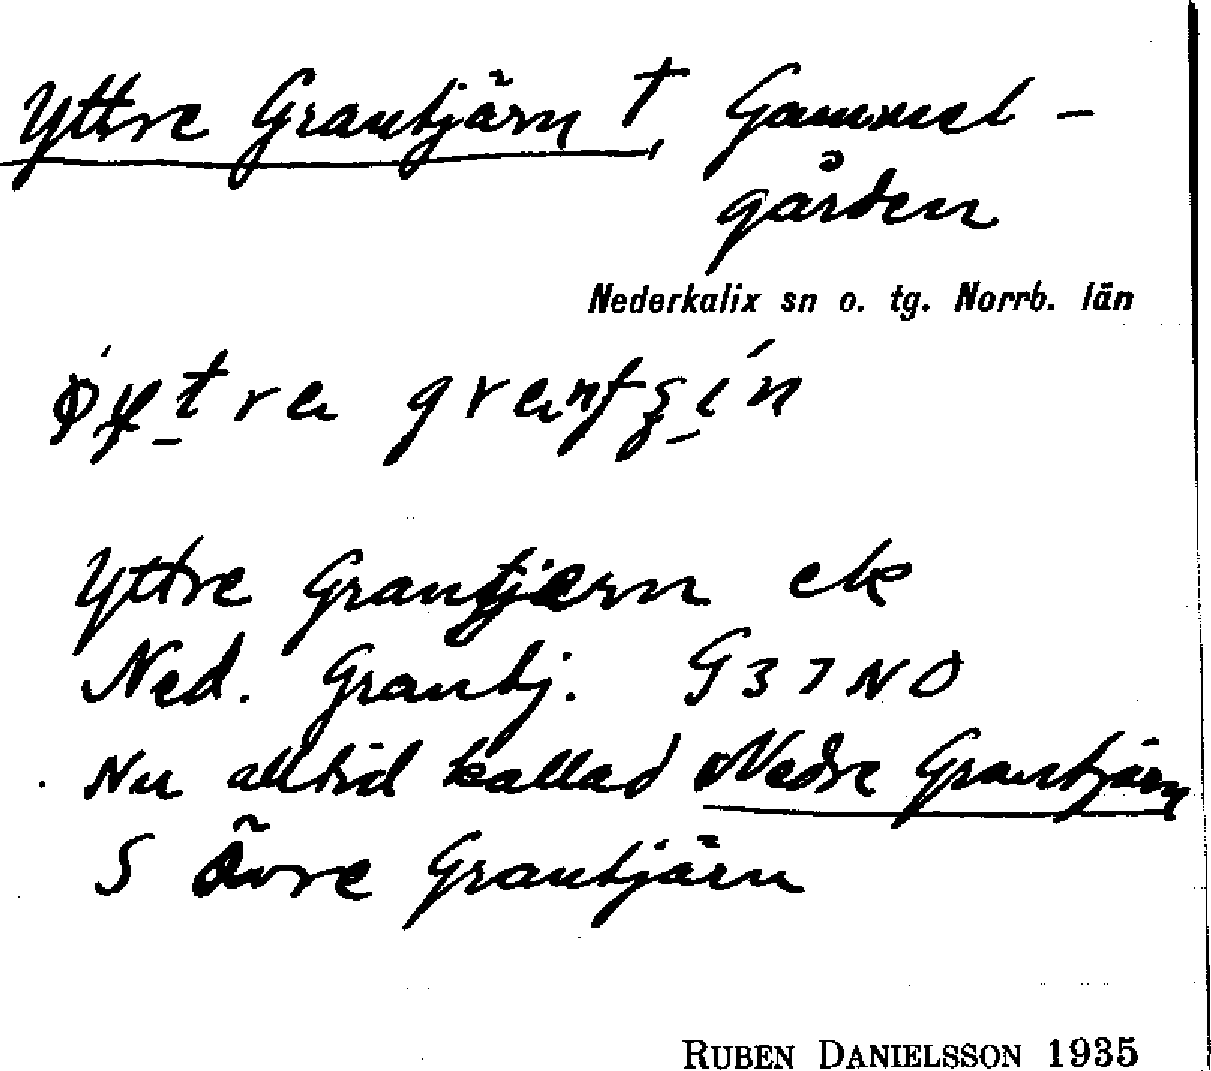 Yttre Grantjärn †, Gammel-
gården
Nederkalix sn o. tg. Norrb. län
Yttre Grantjärn ek
Ned. Grantj. G37NO
Nu alltid kallad Nedre Grantjärn
S Övre Grantjärn
RUBEN DANIELSSON 1935